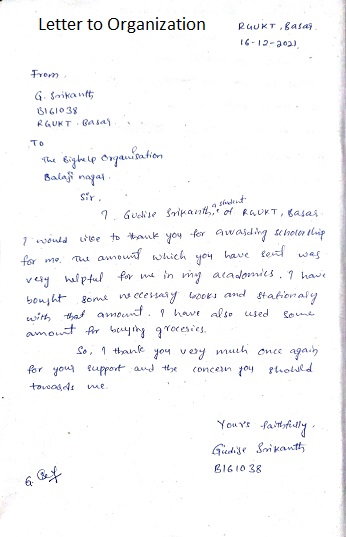 Letter to Organization
RGUKT, Basar.
16-12-2021
From
G. Srikanth
B161038
RGUKT. Basar.
To
The Bighelp Organisation
Balaji nagar.
Sir,
I Gudise Srikanth, a student of RGUKT, Basar.
I would like to thank you for awarding scholarship
for me. The amount which you have sent was
very helpful for me in my academics. I have
bought some neccessary books and stationary
with that amount. I have also used some
amount for buying groceries.
So, I thank you very much once again
for your support and the concern you showed
towards me.
Yours faithfully,
Gudise Srikanth
B161038